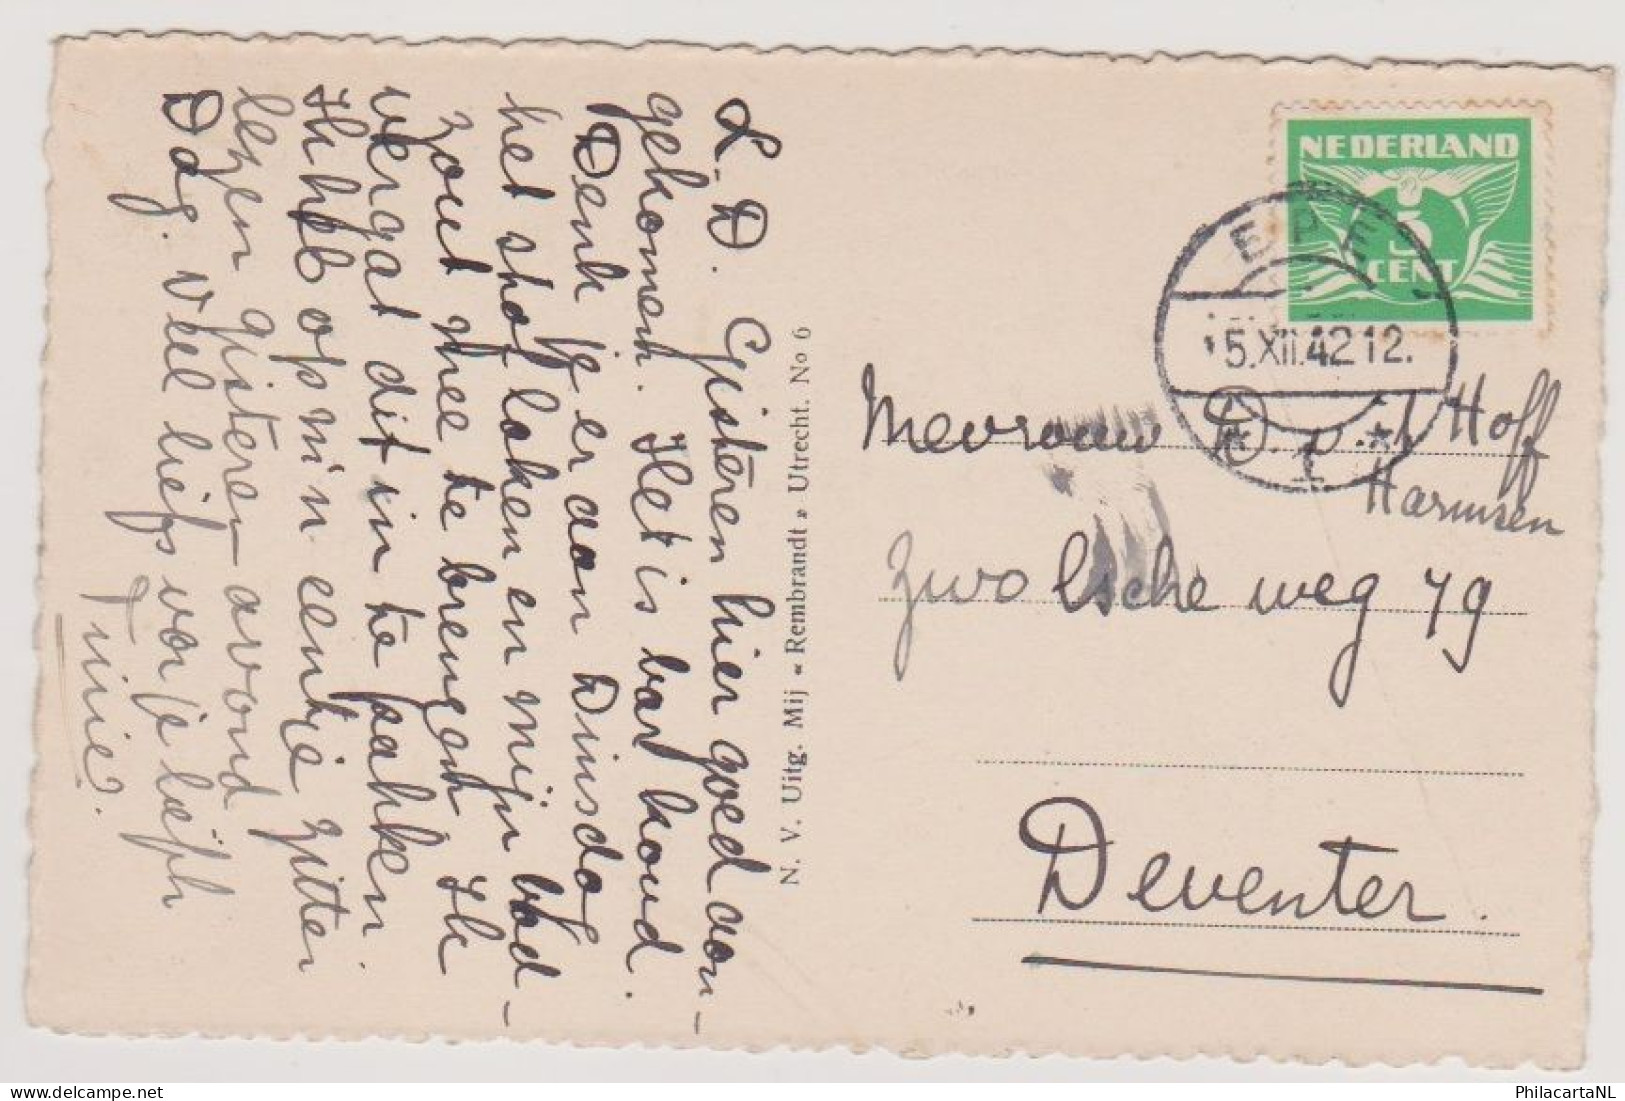 L. D. Gisteren hier goed aan-
gekomen. Het is bar koud.
Denk je er aan Dinsdag
het stof laken en mijn bad-
zout mee te brengen Ik
vergat dit in te pakken.
Ik heb op m'n eentje zitten
lezen gisteren avond
Dag. Veel liefs van je
Tinie.
N. V. Uitg. Mij « Rembrandt » Utrecht. No 6
NEDERLAND
5
CENT
EPE
5.XII.42 12.
1
Mevrouw D. v. 't Hoff
Harmsen
Zwolsche weg 79
Deventer.
PhilacartaNL